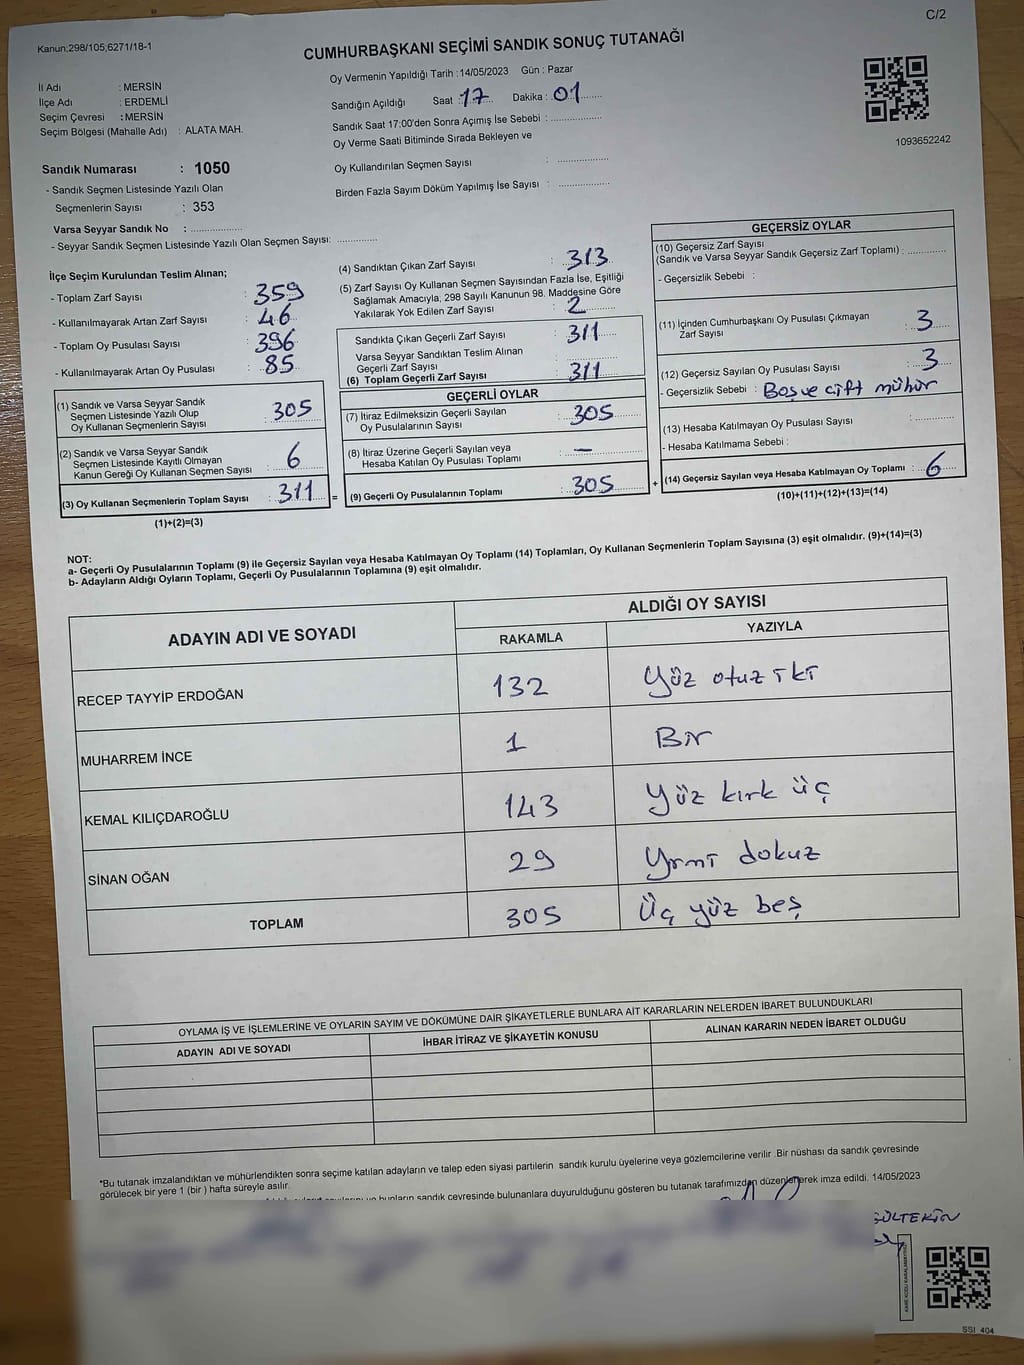 C/2
Kanun;298/105,6271/18-1
CUMHURBAŞKANI SEÇİMİ SANDIK SONUÇ TUTANAĞI
İl Adı : MERSİN
İlçe Adı : ERDEMLİ
Seçim Çevresi : MERSİN
Seçim Bölgesi (Mahalle Adı) : ALATA MAH.
Oy Vermenin Yapıldığı Tarih : 14/05/2023 Gün : Pazar
Sandığın Açıldığı Saat : 17 Dakika : 01
Sandık Saat 17:00'den Sonra Açımış İse Sebebi :
Oy Verme Saati Bitiminde Sırada Bekleyen ve
Oy Kullandırılan Seçmen Sayısı :
Birden Fazla Sayım Döküm Yapılmış İse Sayısı :
1093652242
Sandık Numarası : 1050
- Sandık Seçmen Listesinde Yazılı Olan
Seçmenlerin Sayısı : 353
Varsa Seyyar Sandık No :
- Seyyar Sandık Seçmen Listesinde Yazılı Olan Seçmen Sayısı:
İlçe Seçim Kurulundan Teslim Alınan;
- Toplam Zarf Sayısı : 359
- Kullanılmayarak Artan Zarf Sayısı : 46
- Toplam Oy Pusulası Sayısı : 396
- Kullanılmayarak Artan Oy Pusulası : 85
(1) Sandık ve Varsa Seyyar Sandık
Seçmen Listesinde Yazılı Olup
Oy Kullanan Seçmenlerin Sayısı : 305
(2) Sandık ve Varsa Seyyar Sandık
Seçmen Listesinde Kayıtlı Olmayan
Kanun Gereği Oy Kullanan Seçmen Sayısı : 6
(3) Oy Kullanan Seçmenlerin Toplam Sayısı : 311
(1)+(2)=(3)
(4) Sandıktan Çıkan Zarf Sayısı : 313
(5) Zarf Sayısı Oy Kullanan Seçmen Sayısından Fazla İse, Eşitliği
Sağlamak Amacıyla, 298 Sayılı Kanunun 98. Maddesine Göre
Yakılarak Yok Edilen Zarf Sayısı : 2
Sandıkta Çıkan Geçerli Zarf Sayısı : 311
Varsa Seyyar Sandıktan Teslim Alınan
Geçerli Zarf Sayısı :
(6) Toplam Geçerli Zarf Sayısı : 311
GEÇERLİ OYLAR
(7) İtiraz Edilmeksizin Geçerli Sayılan
Oy Pusulalarının Sayısı : 305
(8) İtiraz Üzerine Geçerli Sayılan veya
Hesaba Katılan Oy Pusulası Toplamı : —
= (9) Geçerli Oy Pusulalarının Toplamı : 305 +
GEÇERSİZ OYLAR
(10) Geçersiz Zarf Sayısı
(Sandık ve Varsa Seyyar Sandık Geçersiz Zarf Toplamı) :
- Geçersizlik Sebebi :
(11) İçinden Cumhurbaşkanı Oy Pusulası Çıkmayan
Zarf Sayısı : 3
(12) Geçersiz Sayılan Oy Pusulası Sayısı : 3
- Geçersizlik Sebebi : Boş ve çift mühür
(13) Hesaba Katılmayan Oy Pusulası Sayısı :
- Hesaba Katılmama Sebebi :
(14) Geçersiz Sayılan veya Hesaba Katılmayan Oy Toplamı : 6
(10)+(11)+(12)+(13)=(14)
NOT:
a- Geçerli Oy Pusulalarının Toplamı (9) ile Geçersiz Sayılan veya Hesaba Katılmayan Oy Toplamı (14) Toplamları, Oy Kullanan Seçmenlerin Toplam Sayısına (3) eşit olmalıdır. (9)+(14)=(3)
b- Adayların Aldığı Oyların Toplamı, Geçerli Oy Pusulalarının Toplamına (9) eşit olmalıdır.
ADAYIN ADI VE SOYADI ALDIĞI OY SAYISI
RAKAMLA YAZIYLA
RECEP TAYYİP ERDOĞAN 132 Yüz otuz iki
MUHARREM İNCE 1 Bir
KEMAL KILIÇDAROĞLU 143 Yüz kırk üç
SİNAN OĞAN 29 Yrmi dokuz
TOPLAM 305 Üç yüz beş
OYLAMA İŞ VE İŞLEMLERİNE VE OYLARIN SAYIM VE DÖKÜMÜNE DAİR ŞİKAYETLERLE BUNLARA AİT KARARLARIN NELERDEN İBARET BULUNDUKLARI
ADAYIN ADI VE SOYADI İHBAR İTİRAZ VE ŞİKAYETİN KONUSU ALINAN KARARIN NEDEN İBARET OLDUĞU
*Bu tutanak imzalandıktan ve mühürlendikten sonra seçime katılan adayların ve talep eden siyasi partilerin sandık kurulu üyelerine veya gözlemcilerine verilir .Bir nüshası da sandık çevresinde
görülecek bir yere 1 (bir ) hafta süreyle asılır.
bunların sandık çevresinde bulunanlara duyurulduğunu gösteren bu tutanak tarafımızdan düzenlenerek imza edildi. 14/05/2023
GÜLTEKİN
KARE KODU KARALAMAYINIZ
SSI 404